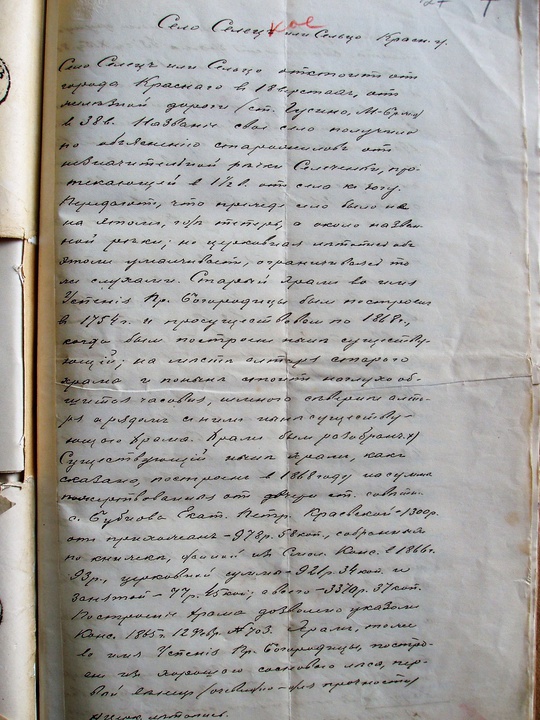 Село Селецкое или Сельцо Красн. у.
Село Селецъ или Сельцо отстоитъ отъ
города Краснаго в 18 верстахъ, от
железной дороги (ст. Гусино, М-Бр.)
в 38 в. Названiе свое село получило
по объясненiю старожиловъ от
незначительной речки Сельчанки, про-
текающей в 1½ в. от села к югу.
Передают, что прежде село было не
на этом, где теперь, а около назван-
ной речки; но церковная летопись об
этом умалчивает, ограничиваясь то
ми слухами. Старый храм во имя
Успенiя Пр. Богородицы был построен
в 1754 г. и просуществовал по 1868 г.,
когда был построен ныне существу-
ющiй; на месте алтаря старого
храма и поныне стоит наглухо об-
шитая часовня, немного севернее алта-
ря а рядом с ним ныне существу-
ющего храма. Храм был разобран.
Существующiй ныне храм, как
сказано, построен в 1868 году на сумму
пожертвованная от двор. ст. советн.
с. Бубнова Екат. Петр. Краевской - 1300 р.
от прихожан - 978 р. 58 коп., собранныя
по книжке, данной из Смол. Конс. в 1866 г.
93 р., церковной суммы - 921 р. 34 коп. и
занятой - 77 р. 45 коп.; а всего - 3370 р. 37 коп.
Построенiе храма дозволено указом
Конс. 1865 г. 12 № 703. Храм, тоже
во имя Успенiя Пр. Богородицы, построен
из хорошего соснового леса, пер-
вый венец (очевидно для прочности)